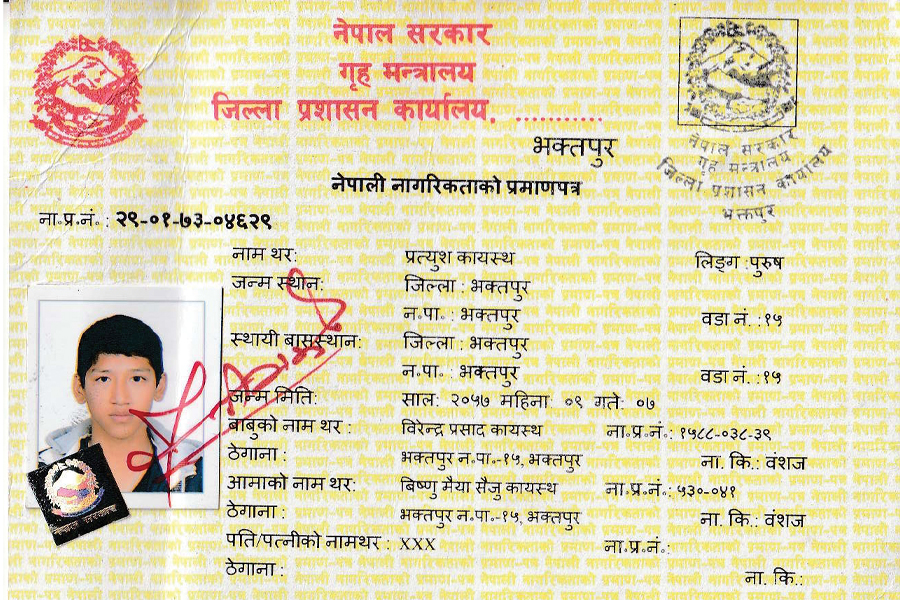 नेपाल सरकार
गृह मन्त्रालय
जिल्ला प्रशासन कार्यालय. ...........
भक्तपुर
नेपाल सरकार
गृह मन्त्रालय
जिल्ला प्रशासन कार्यालय
भक्तपुर
नेपाली नागरिकताको प्रमाणपत्र
ना.प्र.नं. : २९-०१-७३-०४६२९
नाम थर: प्रत्युश कायस्थ लिङ्ग :पुरुष
जन्म स्थान: जिल्ला : भक्तपुर
न.पा. : भक्तपुर वडा नं. :१५
स्थायी बासस्थान: जिल्ला : भक्तपुर
न.पा. : भक्तपुर वडा नं. :१५
जन्म मिति: साल: २०५७ महिना: ०९ गते: ०७
बाबुको नाम थर : विरेन्द्र प्रसाद कायस्थ ना.प्र.नं.: १५८८-०३८-३९
ठेगाना : भक्तपुर न.पा.-१५, भक्तपुर ना. कि.: वंशज
आमाको नाम थर: बिष्णु मैया सैजु कायस्थ ना.प्र.नं.: ५३०-०४१
ठेगाना : भक्तपुर न.पा.-१५, भक्तपुर ना. कि.: वंशज
पति/पत्नीको नामथर : XXX ना.प्र.नं.:
ठेगाना : ना. कि.:
नेपाल सरकार